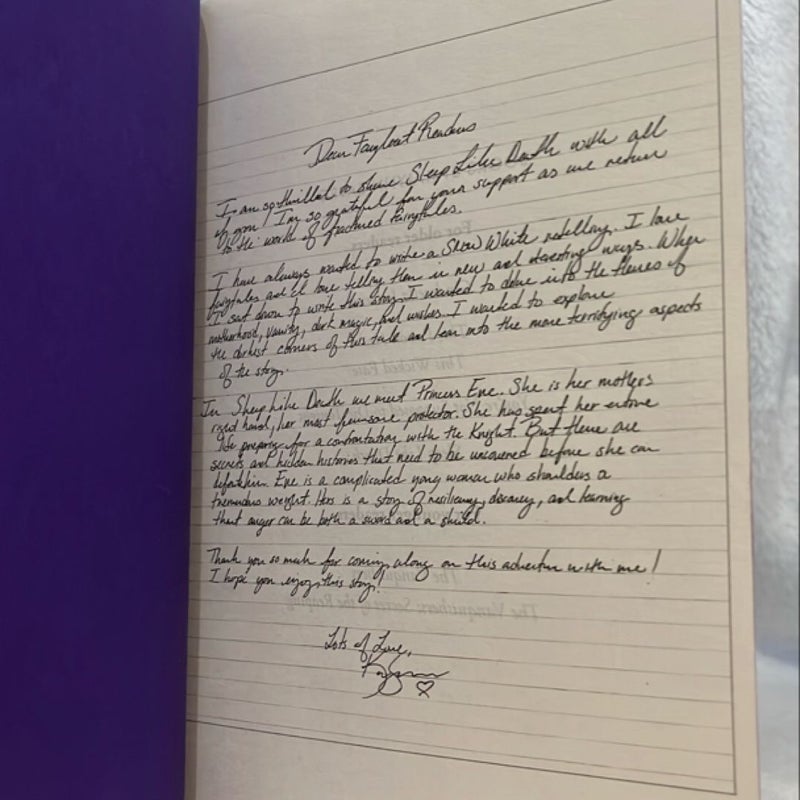 Dear Fairyloot Readers
I am so thrilled to share Sleep Like Death with all
of you! I'm so grateful for your support as we return
to the world of fractured fairytales.
I have always wanted to write a Snow White retelling. I love
fairytales and I love telling them in new and interesting ways. When
I sat down to write this story I wanted to delve into the themes of
motherhood, vanity, dark magic, and wishes. I wanted to explore
the darkest corners of this tale and lean into the more terrifying aspects
of the story.
In Sleep Like Death we meet Princess Eve. She is her mothers
right hand, her most fearsome protector. She has spent her entire
life preparing for a confrontation with the Knight. But there are
secrets and hidden histories that need to be uncovered before she can
defeat him. Eve is a complicated young woman who shoulders a
tremendous weight. Hers is a story of resiliency, discovery, and learning
that anger can be both a sword and a shield.
Thank you so much for coming along on this adventure with me!
I hope you enjoy this story!
Lots of Love,
For older readers
This Wicked Fate
The Vanquishers: Secret of the Reaping